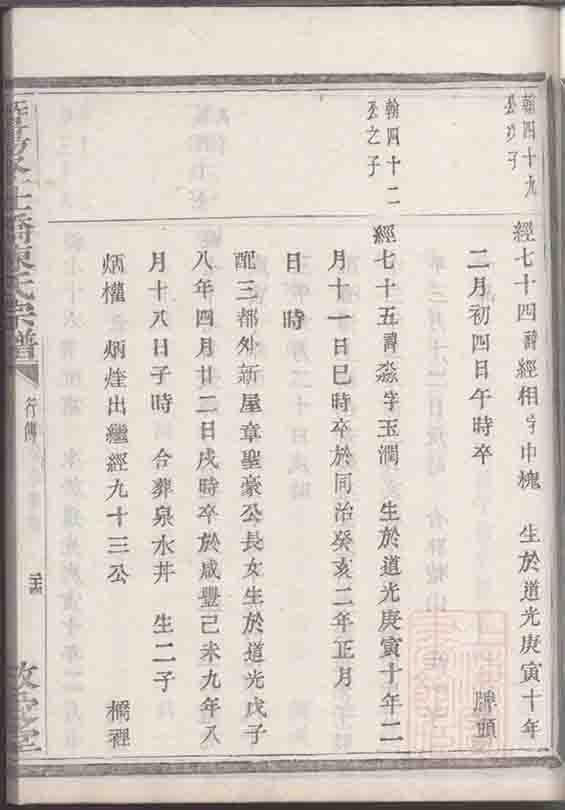 翰四十九
公之子
經七十四諱經相字巾槐 生於道光庚寅十年
二月初四日午時卒 牌頭
翰四十二
公之子
經七十五諱淼字玉潤 生於道光庚寅十年二
月十一日巳時卒於同治癸亥二年正月
日 時
配三都外新屋章聖豪公長女生於道光戊子
八年四月廿二日戌時卒於咸豐己未九年八
月十八日子時 合葬泉水井 生二子
炳權 炳煃出繼經九十三公 橘裡
宗譜
行傳